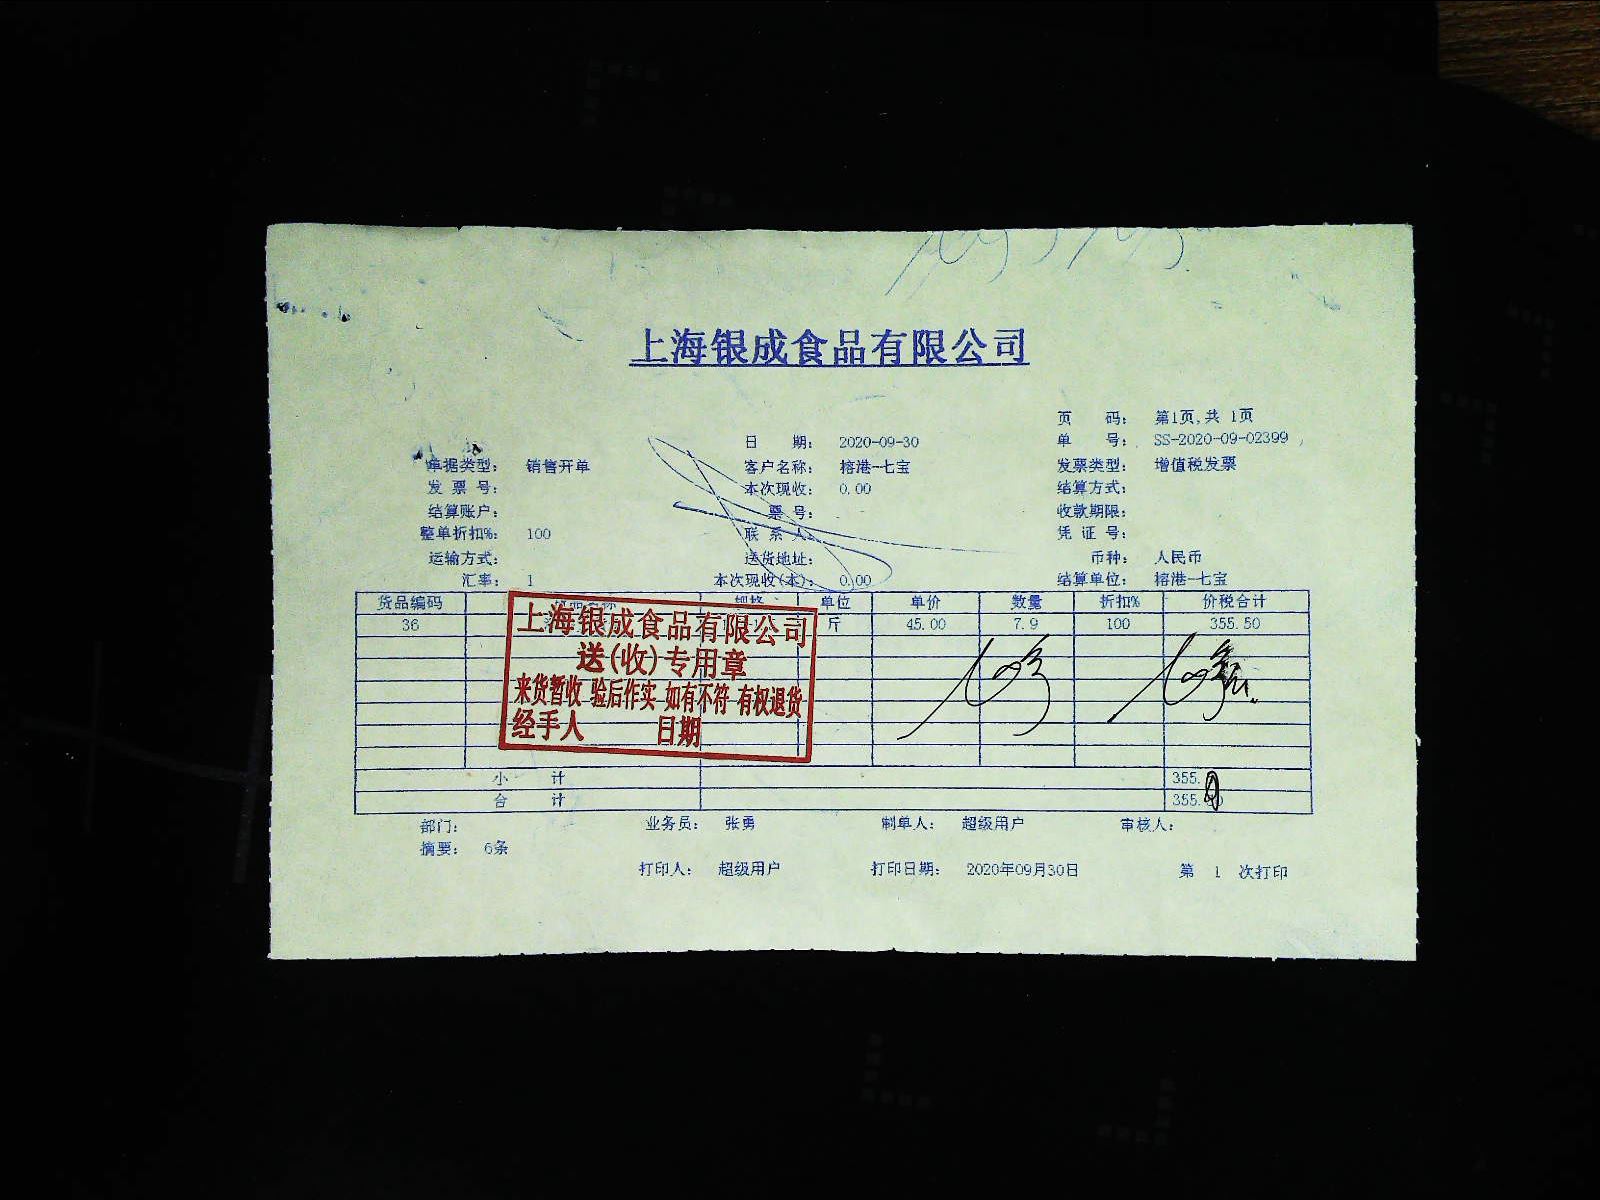 上海银成食品有限公司
页 码: 第1页,共 1页
日 期: 2020-09-30 单 号: SS-2020-09-02399
单据类型: 销售开单 客户名称: 榕港-七宝 发票类型: 增值税发票
发 票 号: 本次现收: 0.00 结算方式:
结算账户: 票 号: 收款期限:
整单折扣%: 100 联 系 人: 凭 证 号:
运输方式: 送货地址: 币种: 人民币
汇率: 1 本次现收(本): 0.00 结算单位: 榕港-七宝
货品编码 规格 单位 单价 数量 折扣% 价税合计
36 斤 45.00 7.9 100 355.50
上海银成食品有限公司
送(收)专用章
来货暂收 验后作实 如有不符 有权退货
经手人 日期
小 计 355.
合 计 355.
部门: 业务员: 张勇 制单人: 超级用户 审核人:
摘要: 6条
打印人: 超级用户 打印日期: 2020年09月30日 第 1 次打印